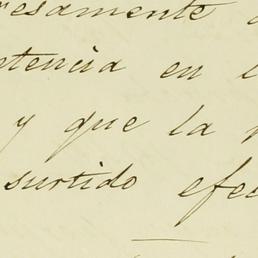 resamente
tencia en l
y que la
surtido efec